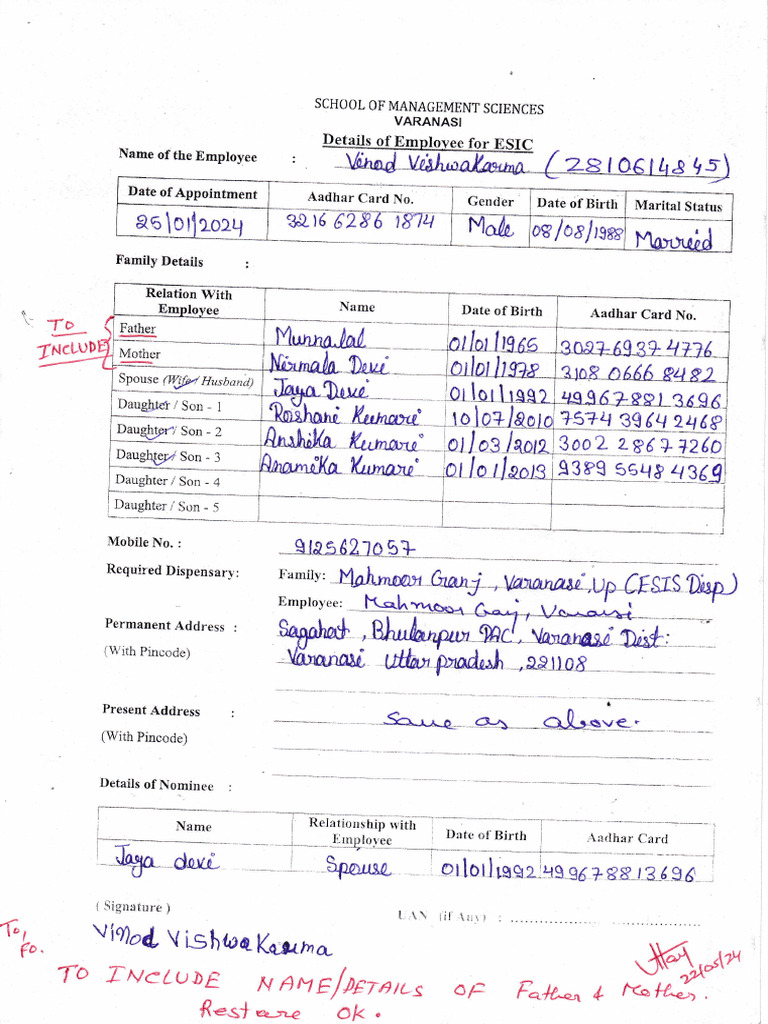 SCHOOL OF MANAGEMENT SCIENCES
VARANASI
Details of Employee for ESIC
Name of the Employee : Vinod Vishwakarma (2810614845)
Date of Appointment Aadhar Card No. Gender Date of Birth Marital Status
25/01/2024 3216 6286 1874 Male 08/08/1988 Marreed
Family Details :
Relation With Employee Name Date of Birth Aadhar Card No.
TO INCLUDE
Father Munnalal 01/01/1965 3027 6937 4776
Mother Nirmala Devi 01/01/1978 3108 0666 8482
Spouse (Wife/ Husband) Jaya Devi 01/01/1992 499678813696
Daughter / Son - 1 Roshani Kumari 10/07/2010 7574 3964 2468
Daughter / Son - 2 Anshika Kumari 01/03/2012 3002 2867 7260
Daughter / Son - 3 Anamika Kumari 01/01/2013 9389 5548 4369
Daughter / Son - 4
Daughter / Son - 5
Mobile No. : 9125627057
Required Dispensary: Family: Mahmoor Ganj, Varanasi, Up (ESIS Disp)
Employee: Mahmoor Ganj, Varansi
Permanent Address : Sagahat, Bhulanpur PAC, Varanasi Dist:
(With Pincode) Varanasi Uttar pradesh, 221108
Present Address : Same as above.
(With Pincode)
Details of Nominee :
Name Relationship with Employee Date of Birth Aadhar Card
Jaya devi Spouse 01/01/1992 499678813696
( Signature ) UAN (if Any) :
Vinod Vishwakarma
To,
Fo.
22/05/24
TO INCLUDE NAME/DETAILS OF Father & Mother.
Rest are OK.